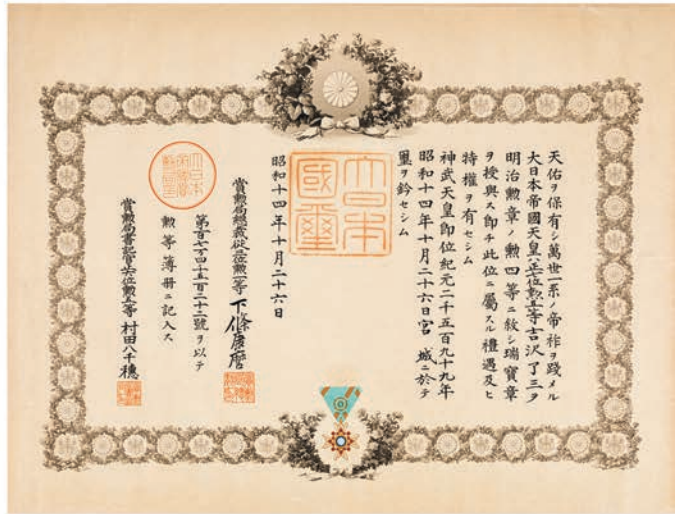 天佑ヲ保有シ萬世一系ノ帝祚ヲ踐メル
大日本帝國天皇ハ位勲五等吉沢了三ヲ
明治勲章ノ勲四等ニ敍シ瑞寶章
ヲ授與ス即チ此位ニ屬スル禮遇及ヒ
特權ヲ有セシム
神武天皇即位紀元二千五百九十九年
昭和十四年十月二十六日宮城ニ於テ
璽ヲ鈐セシム
大日本
國璽
昭和十四年十月二十六日
賞勲局總裁從三位勲一等 下條康麿
第百七万四千五百二十二號ヲ以テ
勲等簿冊ニ記入ス
賞勲局書記官位勲五等 村田八千穗